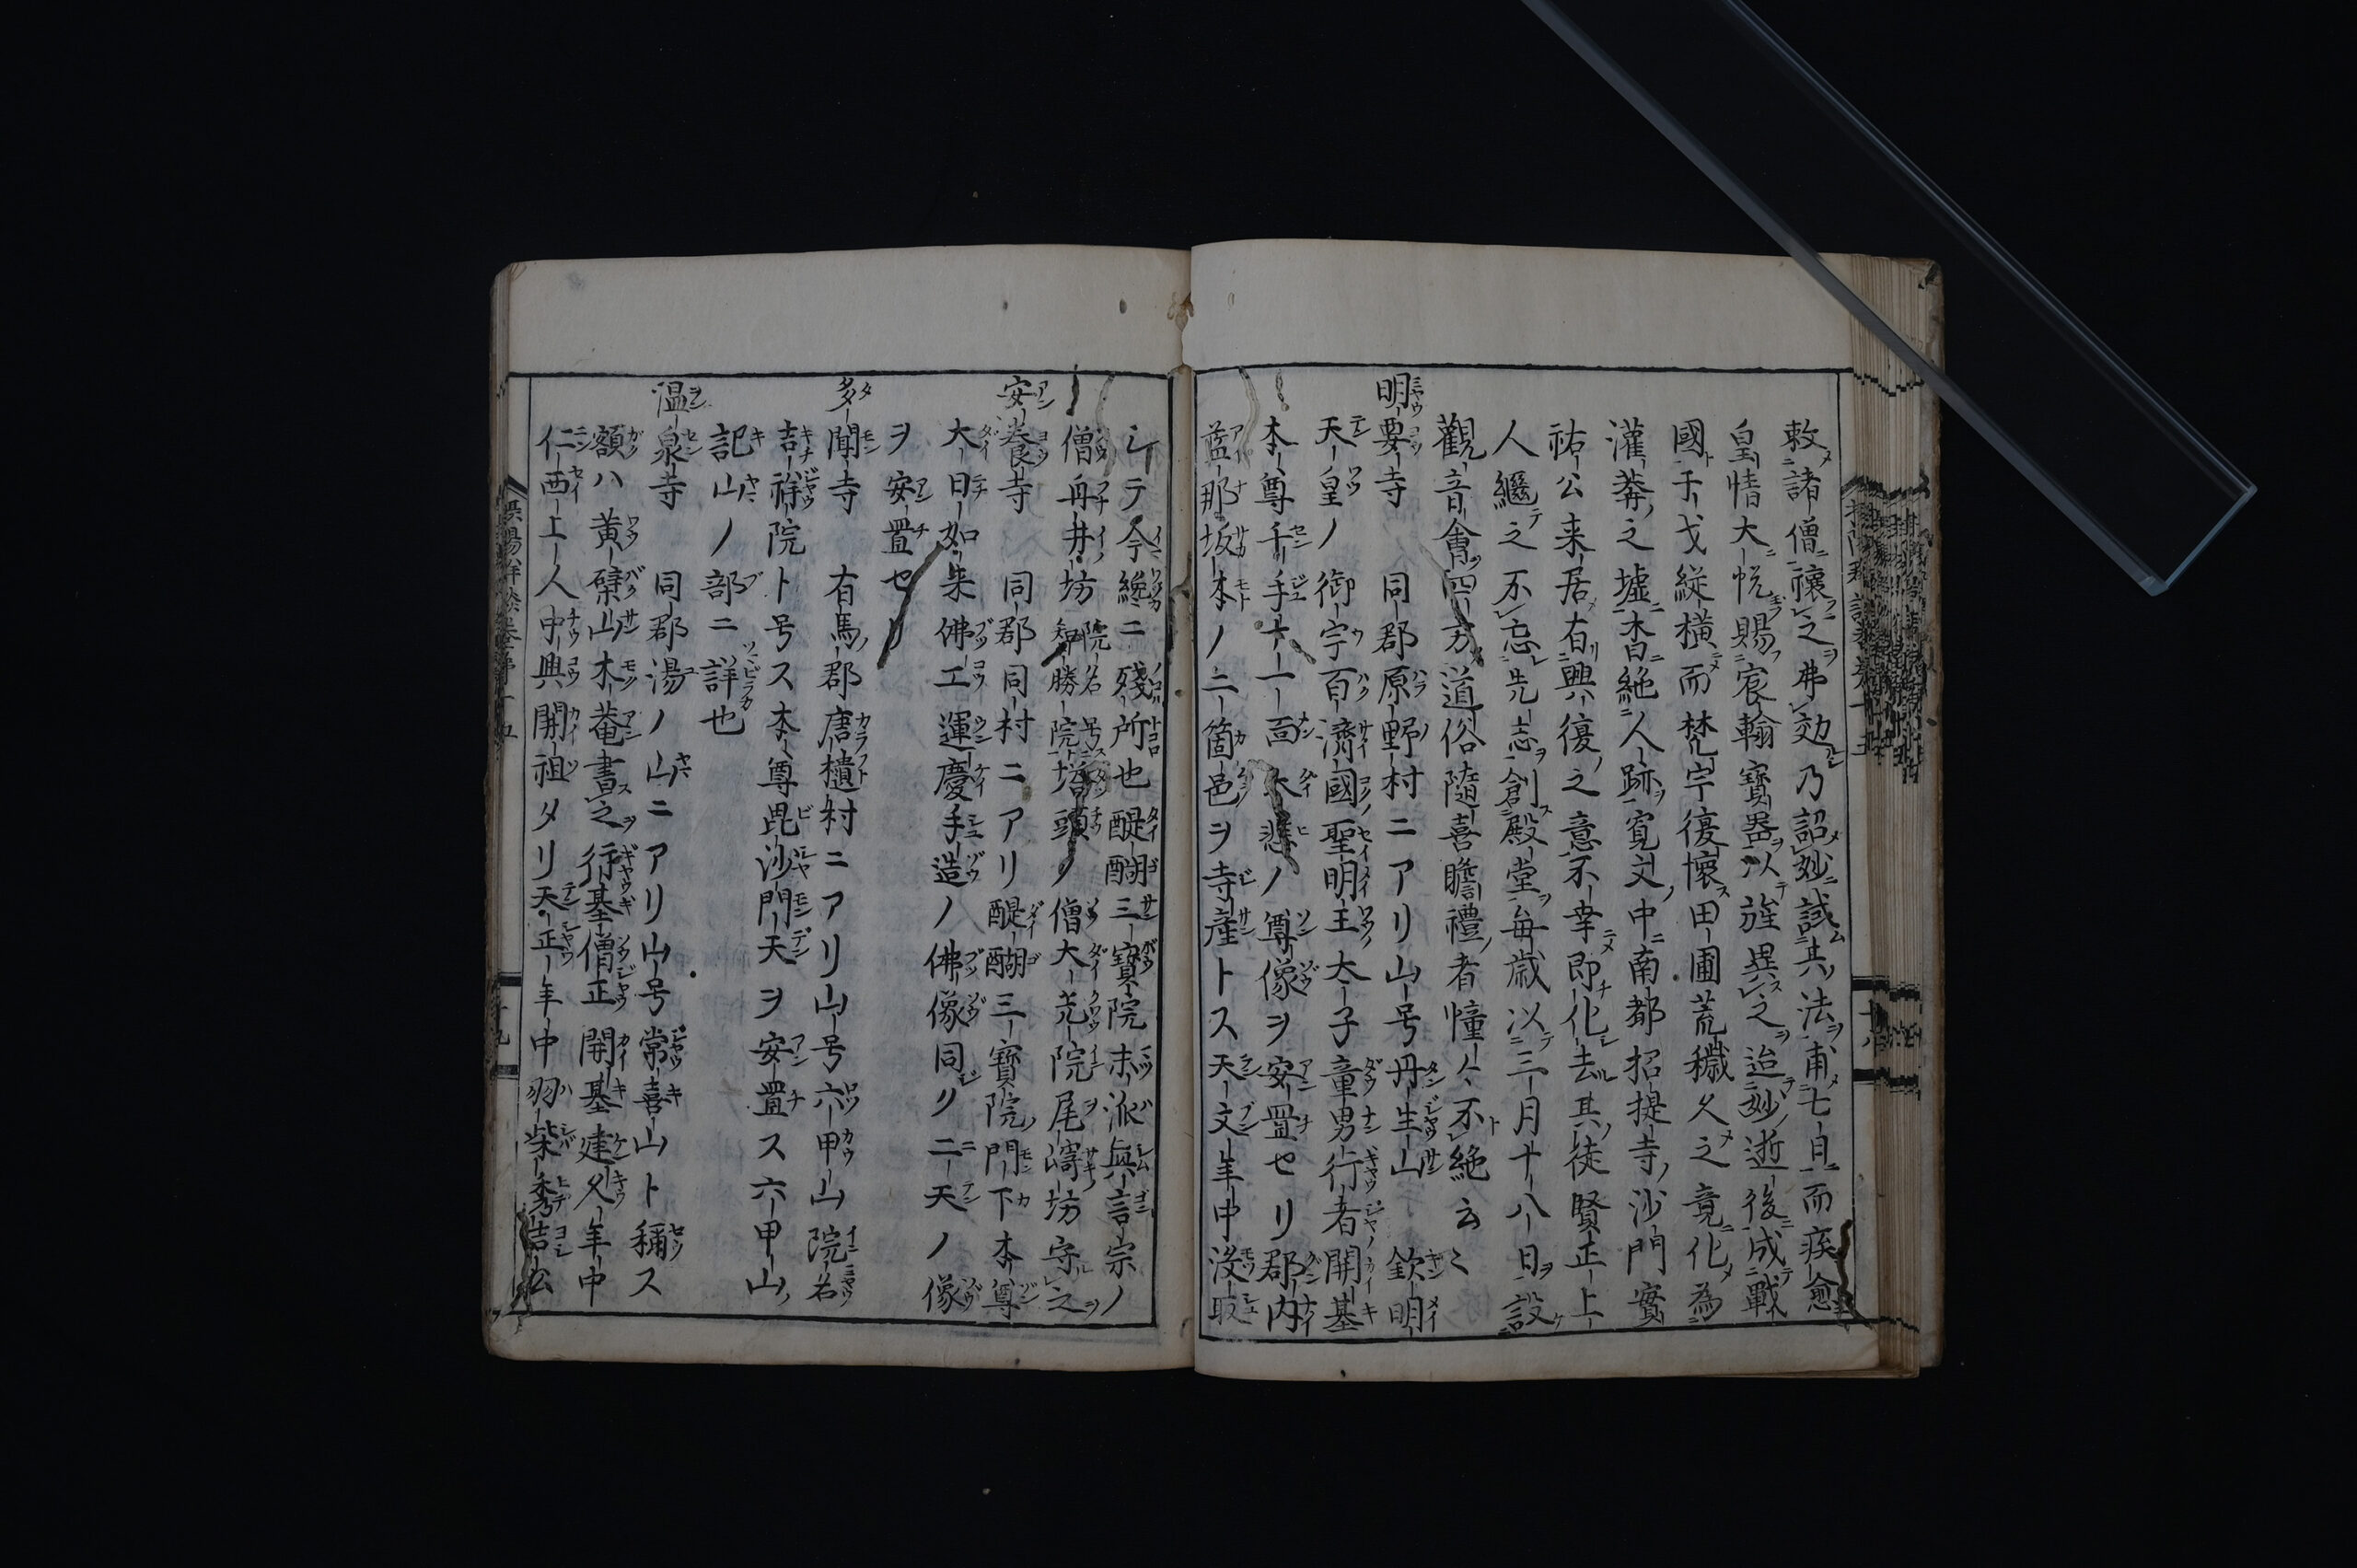 敕諸僧禳之弗効乃詔妙試其法甫七日而疾愈
皇情大悦賜宸翰寶器以旌異之迨妙逝後成戰
國干戈縱横而梵宇復壞田圃荒穢久之竟化為
灌莽之墟杳絶人跡寛文中南都招提寺沙門實
祐公来居有興復之意不幸即化去其徒賢正上
人繼之不忘先志創殿堂毎歳以三月十八日設
觀音會四方道俗隨喜瞻禮者憧々不絶云々
明要寺 同郡原野村ニアリ山号丹生山 欽明
天皇ノ御宇百濟國聖明王太子童男行者開基
本尊千手十一面大悲ノ尊像ヲ安置セリ郡内
藍那坂本ノ二箇邑ヲ寺産トス天文年中没収
シテ今纔ニ残所也醍醐三寶院末派眞言宗ノ
僧舟井坊 院名号智勝院 塔頭ノ僧大光院尾﨑坊守之
安養寺 同郡同村ニアリ醍醐三寶院門下本尊
大日如来佛工運慶手造ノ佛像同リ二天ノ像
ヲ安置セリ
多聞寺 有馬郡唐櫃村ニアリ山号六甲山院名
吉祥院ト号ス本尊毘沙門天ヲ安置ス六甲山
記山ノ部ニ詳也
温泉寺 同郡湯ノ山ニアリ山号常喜山ト稱ス
額ハ黄檗山木菴書之行基僧正開基建久年中
仁西上人中興開祖タリ天正年中羽柴秀吉公